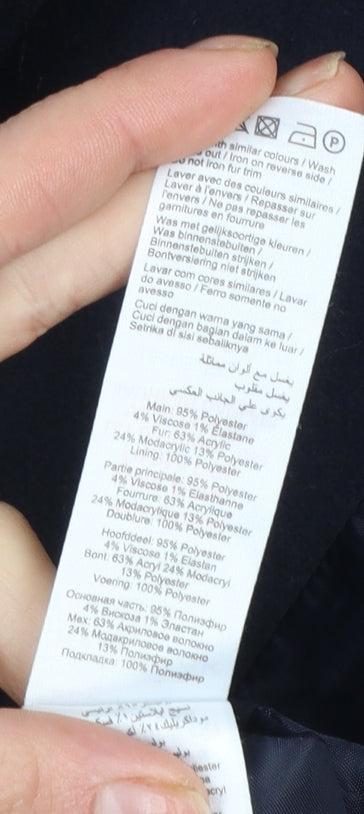 P
th similar colours / Wash
out / Iron on reverse side /
not Iron fur trim
Laver avec des couleurs similaires /
Laver à l'envers / Repasser sur
l'envers / Ne pas repasser les
garnitures en fourrure
Was met gelijksoortige kleuren /
Was binnenstebuiten /
Binnenstebuiten strijken /
Bontversiering niet strijken
Lavar com cores similares / Lavar
do avesso / Ferro somente no
avesso
Cuci dengan warna yang sama /
Cuci dengan bagian dalam ke luar /
Setrika di sisi sebaliknya
يغسل مع ألوان مماثلة
يغسل مقلوب
يكوى على الجانب العكسي
Main: 95% Polyester
4% Viscose 1% Elastane
Fur: 63% Acrylic
24% Modacrylic 13% Polyester
Lining: 100% Polyester
Partie principale: 95% Polyester
4% Viscose 1% Elasthanne
Fourrure: 63% Acrylique
24% Modacrylique 13% Polyester
Doublure: 100% Polyester
Hoofddeel: 95% Polyester
4% Viscose 1% Elastan
Bont: 63% Acryl 24% Modacryl
13% Polyester
Voering: 100% Polyester
Основная часть: 95% Полиэфир
4% Вискоза 1% Эластан
Мех: 63% Акриловое волокно
24% Модакриловое волокно
13% Полиэфир
Подкладка: 100% Полиэфир